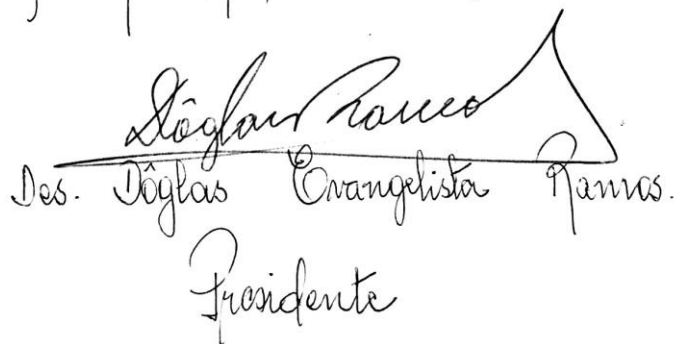 Dôglas Ramos
Des. Dôglas Evangelista Ramos.
Presidente